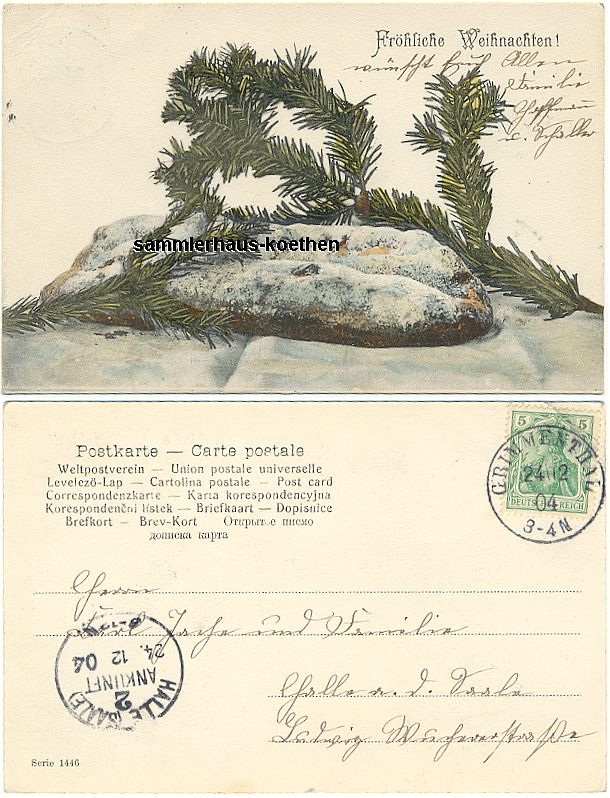 Fröhliche Weihnachten!
wünscht Euch Allen
Familie
Hoffmann
u. Schaller
sammlerhaus-koethen
Postkarte — Carte postale
Weltpostverein — Union postale universelle
Levelező-Lap — Cartolina postale — Post card
Correspondenzkarte — Karta korespondencyjna
Korespondenční lístek — Briefkaart — Dopisnice
Brefkort — Brev-Kort Открытое письмо
дописка карта
5 5
DEUTSCHES REICH
GRIMMENTHAL
24 12
04
3-4N
Herrn
Karl Jache und Familie
Halle a. d. Saale
Ludwig Wuchererstraße
HALLE (SAALE)
2
ANKUNFT
24. 12 04
Serie 1446